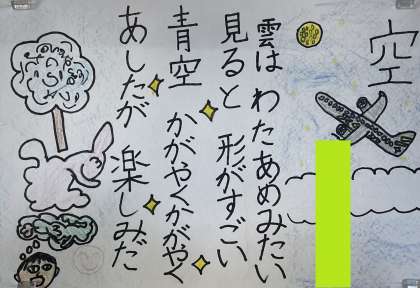 空
雲は わたあめみたい
見ると 形がすごい
青空 かがやくかがやく
あしたが 楽しみだ